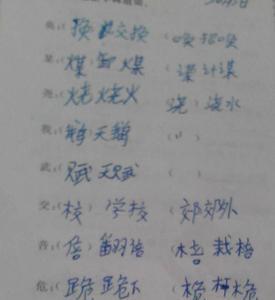 奂：（换）交换 （唤 招唤
某：（煤）卸煤 （谋 计谋
尧：（烧 烧火 浇）浇水
我：（鹅）天鹅 （ ）
武：（赋 天赋 （ ）
交：（校）学校 （郊 郊外
（倍）翻倍 （棓 栽棓
危：（跪 跪下 （桅 杆桅